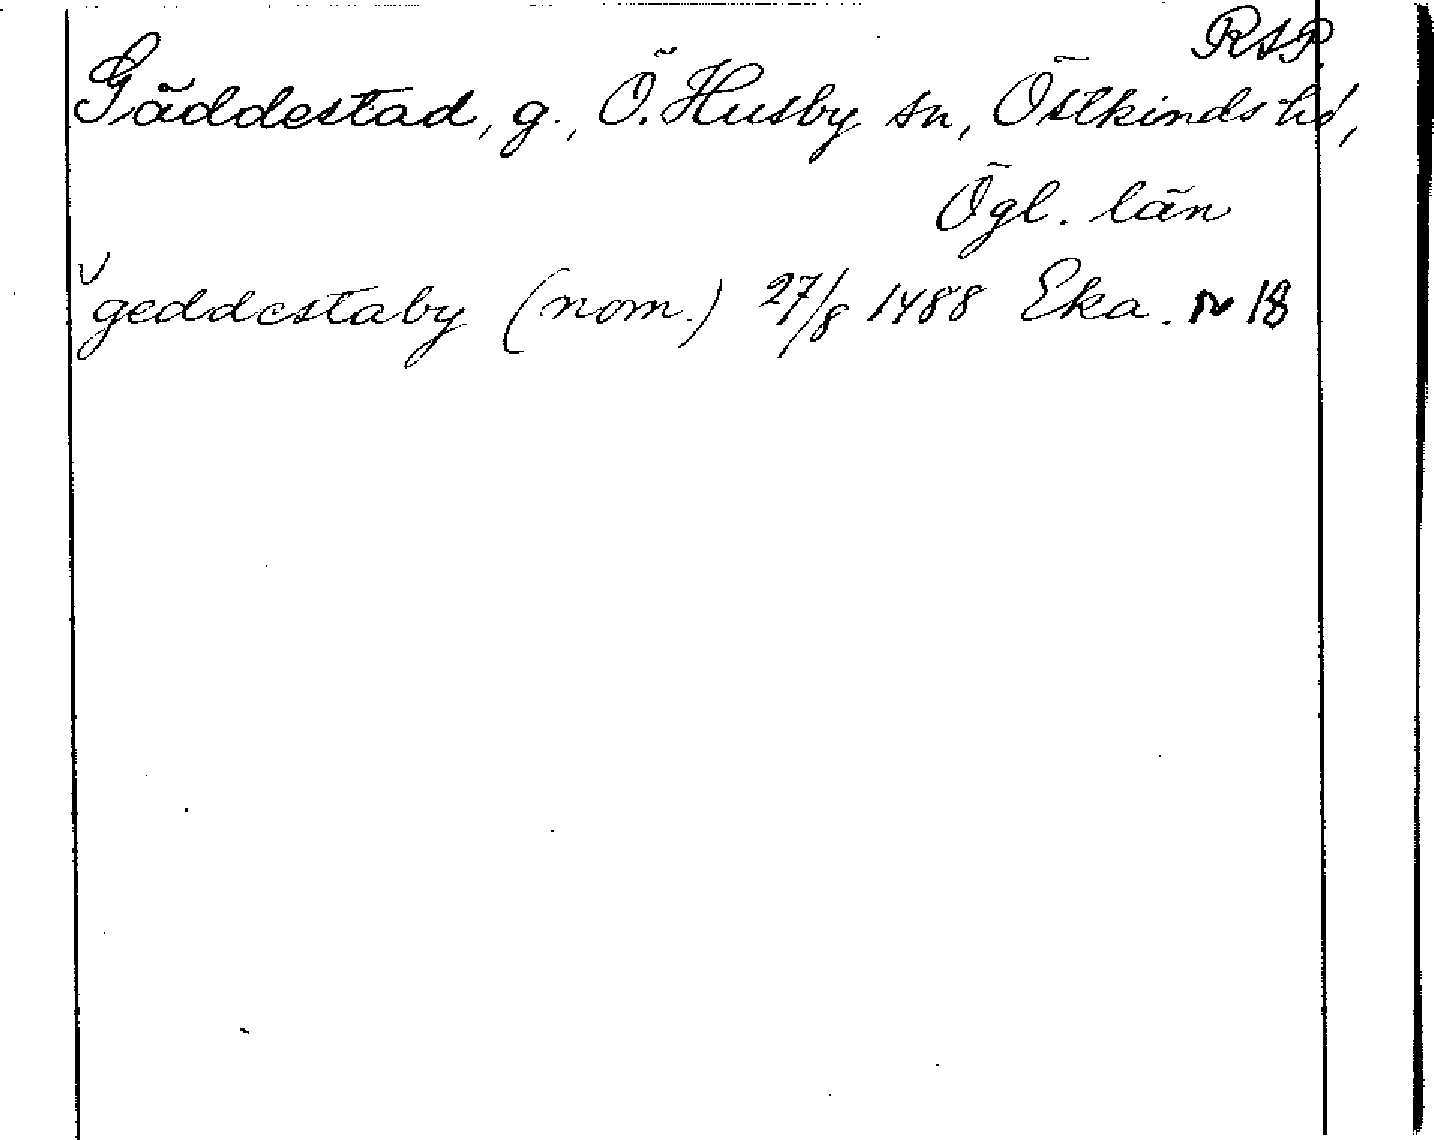 RAP.
Gäddestad, g., Ö. Husby sn, Östkinds hd,
Ögl. län
geddestaby (nom.) 27/8 1488 Eka. nr 18